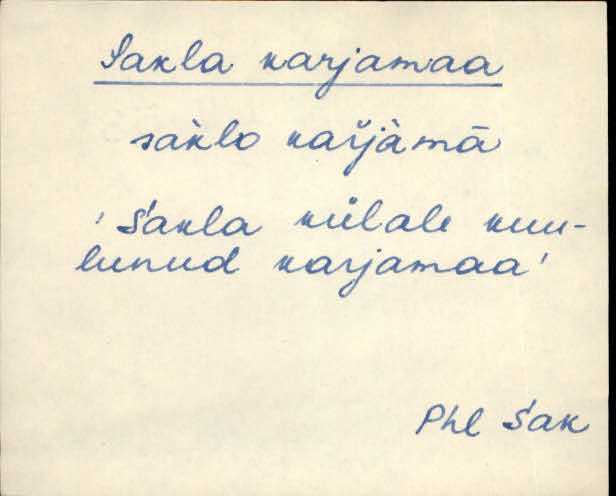 Sakla karjamaa
sàklo kařjàmā
'Sakla külale kuu-
lunud karjamaa'
Phl Sak